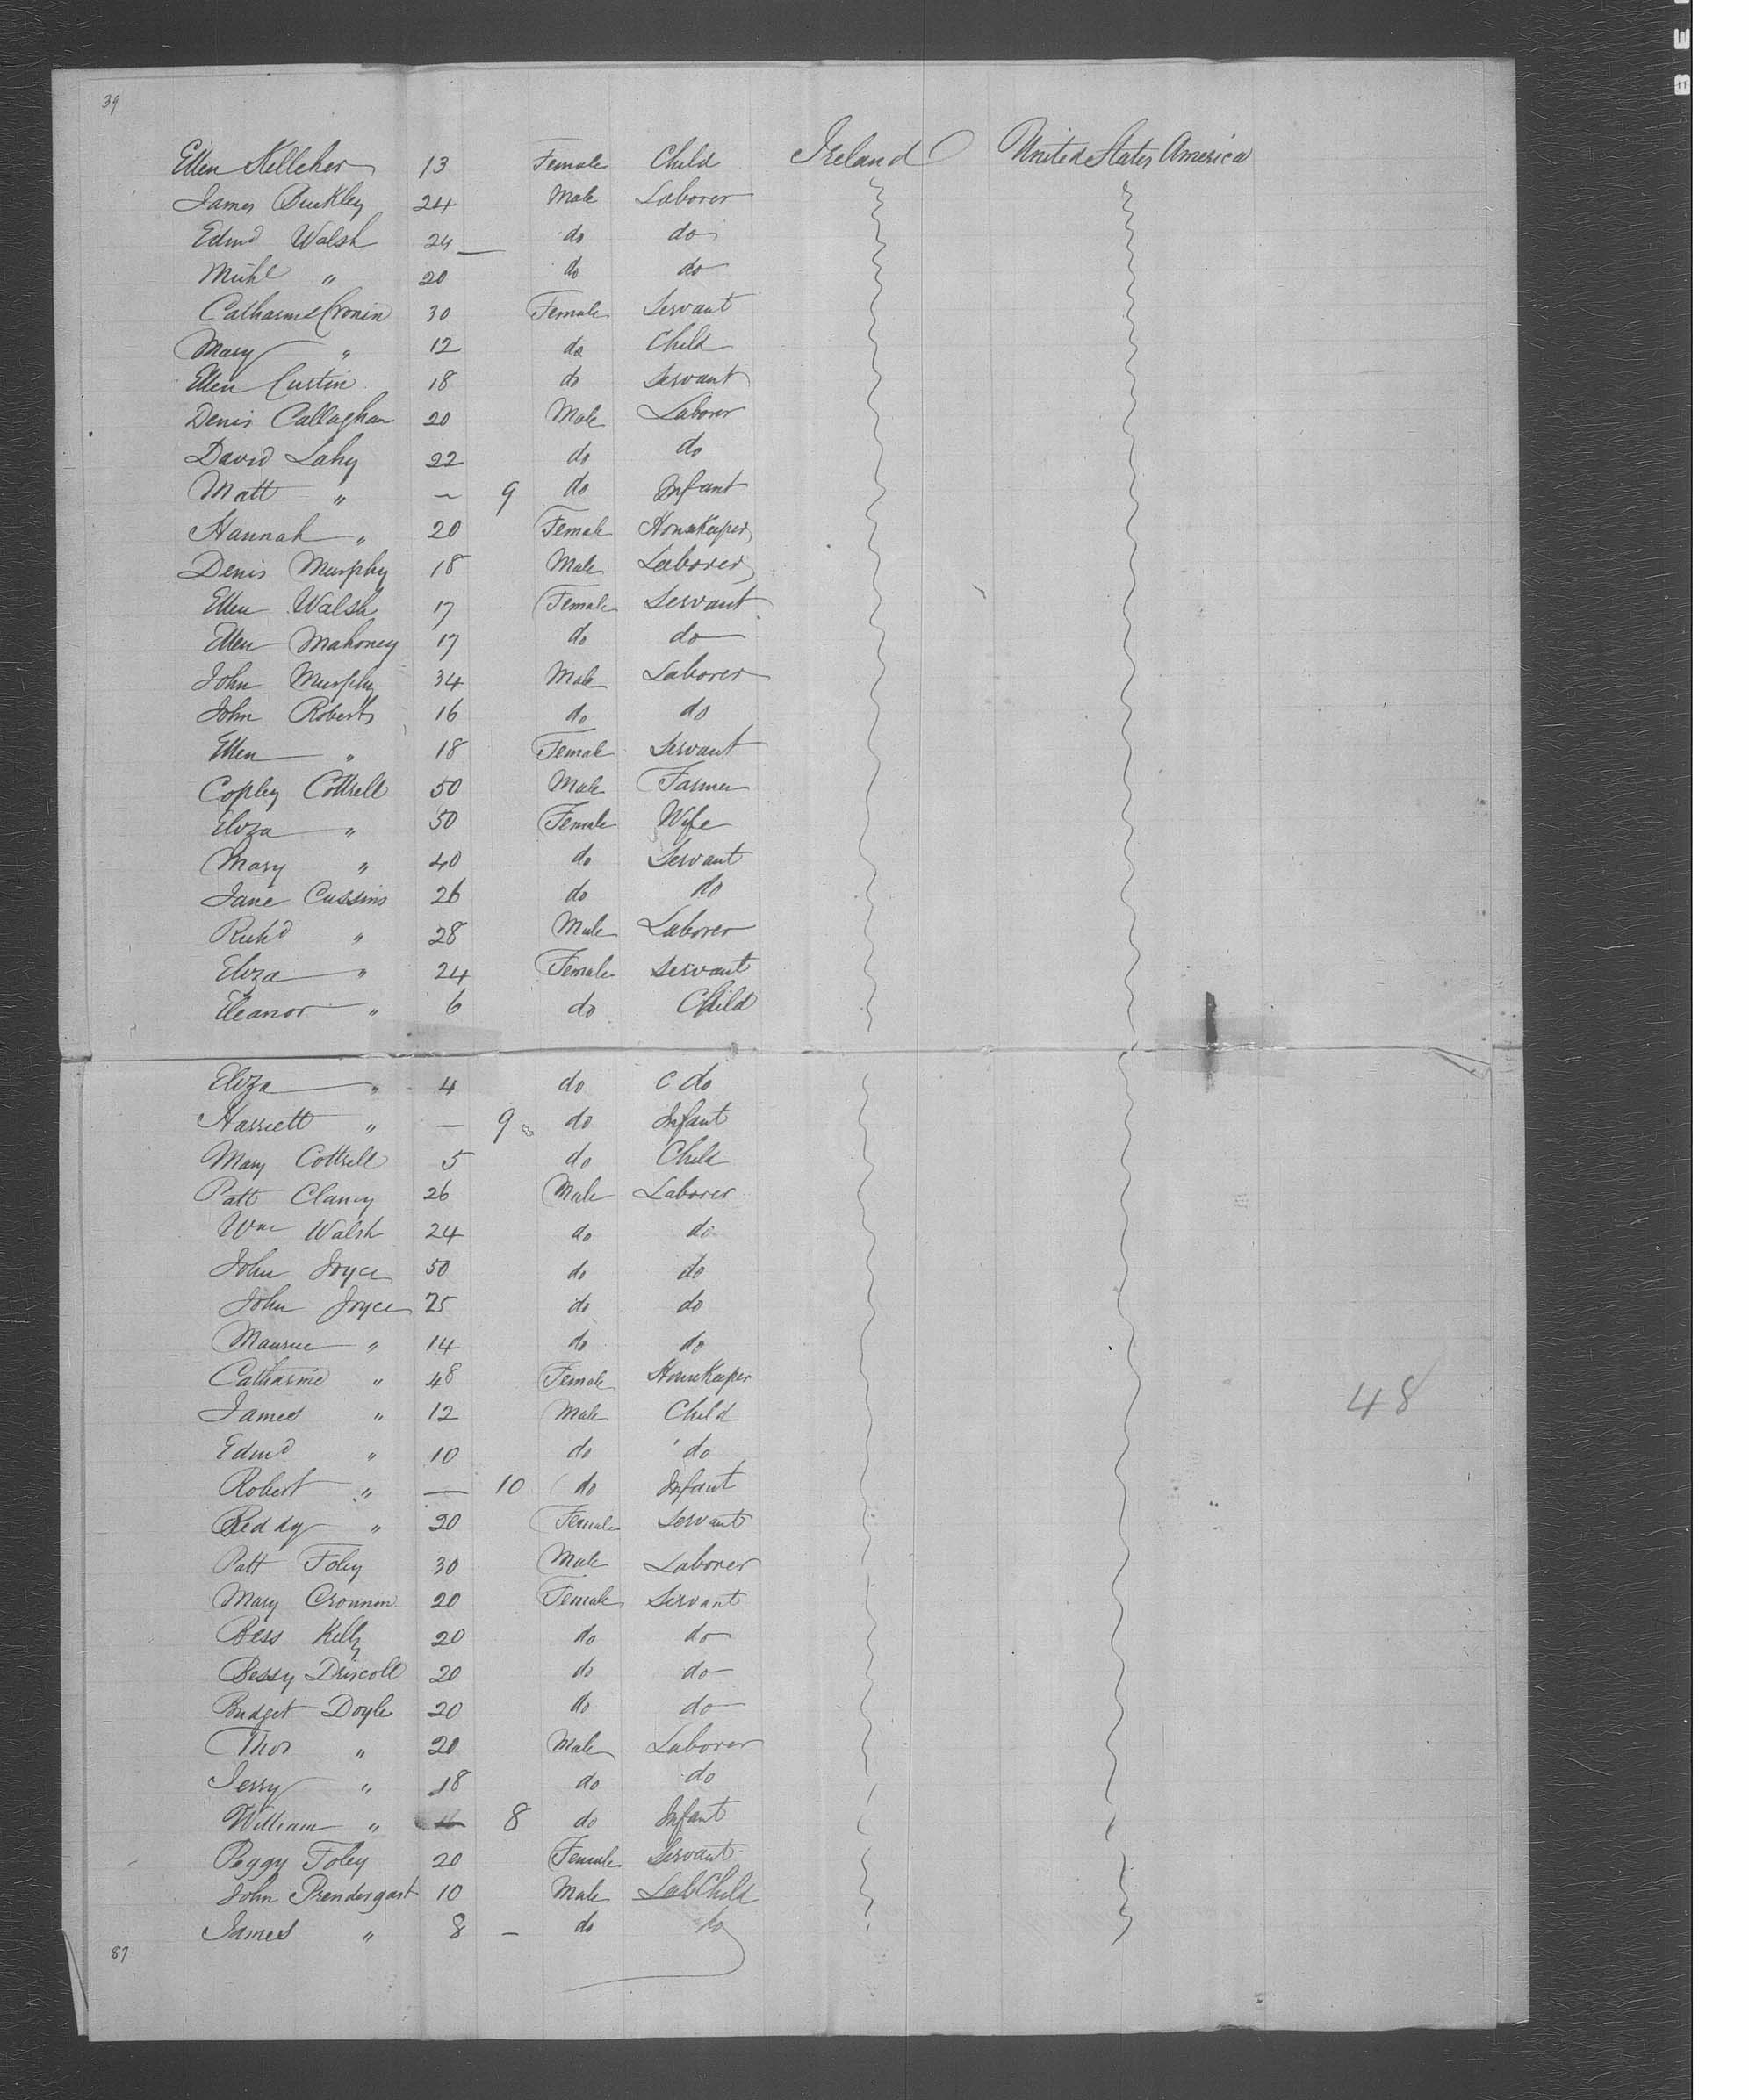 39
Ellen Kelleher 13 Female Child Ireland United States America
James Buckley 24 Male Laborer
Edmd Walsh 24 — do do
Michl " 20 do do
Catharine Cronin 30 Female Servant
Mary " 12 do Child
Ellen Curtin 18 do Servant
Denis Callaghan 20 Male Laborer
David Lahy 22 do do
Matt " — 9 do Infant
Hannah " 20 Female Housekeeper
Denis Murphy 18 Male Laborer
Ellen Walsh 17 Female Servant
Ellen Mahoney 17 do do
John Murphy 34 Male Laborer
John Roberts 16 do do
Ellen " 18 Female Servant
Copley Cottrell 50 Male Farmer
Eliza " 50 Female Wife
Mary " 40 do Servant
Jane Cussins 26 do do
Richd " 28 Male Laborer
Eliza " 24 Female Servant
Eleanor " 6 do Child
Eliza " 4 do C do
Harriett " — 9 do Infant
Mary Cottrell 5 do Child
Patt Clancy 26 Male Laborer
Wm Walsh 24 do do
John Joyce 50 do do
John Joyce 25 do do
Maurice " 14 do do
Catharine " 48 Female Housekeeper
James " 12 Male Child 48
Edmd " 10 do do
Robert " — 10 do Infant
Reddy " 20 Female Servant
Patt Foley 30 Male Laborer
Mary Cronnin 20 Female Servant
Bess Kelly 20 do do
Bessy Driscoll 20 do do
Bridget Doyle 20 do do
Thos " 20 Male Laborer
Jerry " 18 do do
William " 8 do Infant
Peggy Foley 20 Female Servant
John Prendergast 10 Male Lab Child
James " 8 — do do
87.